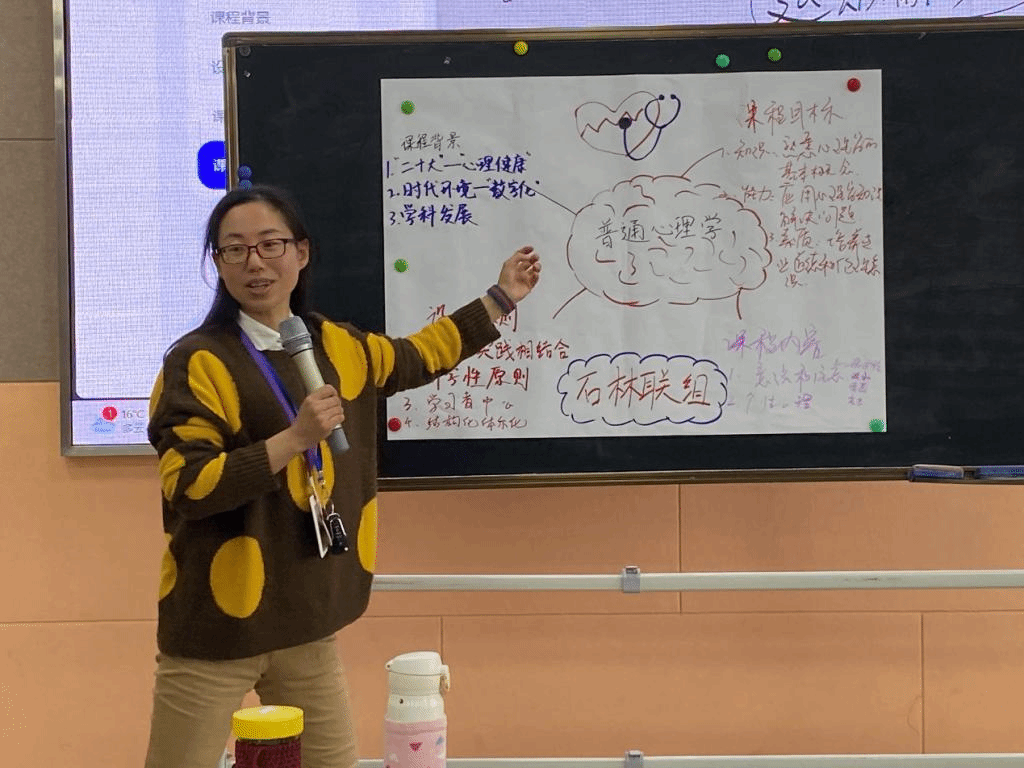 课程背景
课程背景
1."二十大"—"心理健康"
2.时代环境—"数字化"
3.学科发展
普通心理学
课程目标
1.知识:熟悉心理学的
基本概念
能力:应用心理学知识
解决问题
素质:培养
设 则
实践相结合
性原则
3.学习者中心
4.结构化体系化
石林联组
课程内容
1.意识和注意
2.个性心理
1
16°C
多云